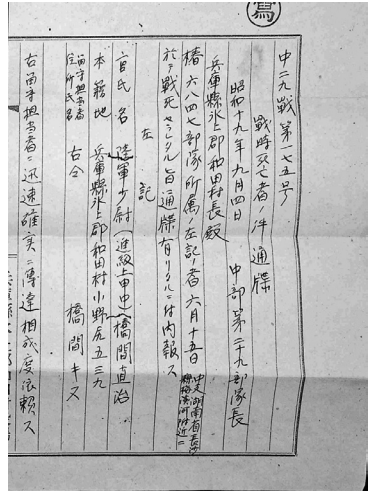 寫
中二九戰第一七五号
戰時死亡者ノ件通牒
昭和十九年九月四日 中部第二十九部隊長
兵庫縣氷上郡和田村長殿
椿六八四七部隊所屬ノ左記ノ者六月十五日中支湖南省長沙縣 附近ニ
於テ戰死セラレタル旨通牒有リタルニ付内報ス
左記
官氏名 陸軍少尉(進級上申中)橋間直治
本籍地 兵庫縣氷上郡和田村小野尻五三九
留守担当者住所氏名 右仝 橋間キス
右留守担当者ニ迅速確実ニ傳達相成度依賴ス